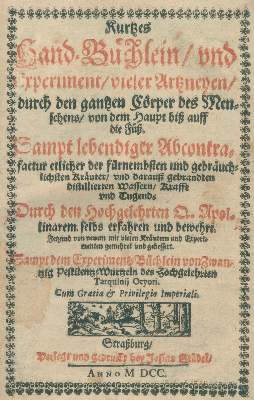 Kurtzes
Hand-Büchlein / und
Experiment / vieler Artzneyen /
durch den gantzen Cörper des Men-
schens / von dem Haupt biß auff
die Füß.
Sampt lebendiger Abcontra-
factur etlicher der fürnembsten und gebräuch-
lichsten Kräuter / und darauß gebrandten
distillierten Wassern / Krafft
und Tugend.
Durch den Hochgelehrten Q. Apol-
linarem selbs erfahren und bewehrt.
Jetzund von newem mit vielen Kräutern und Experi-
menten gemehret und gebessert.
Sampt dem Experiment-Büchlein von Zwan-
tzig Pestilentz-Wurtzeln des Hochgelehrten
Tarquinij Ocyori.
Cum Gratia & Privilegio Imperiali.
Straßburg /
Verlegt und gedruckt bey Josias Städel /
ANNO M DCC.